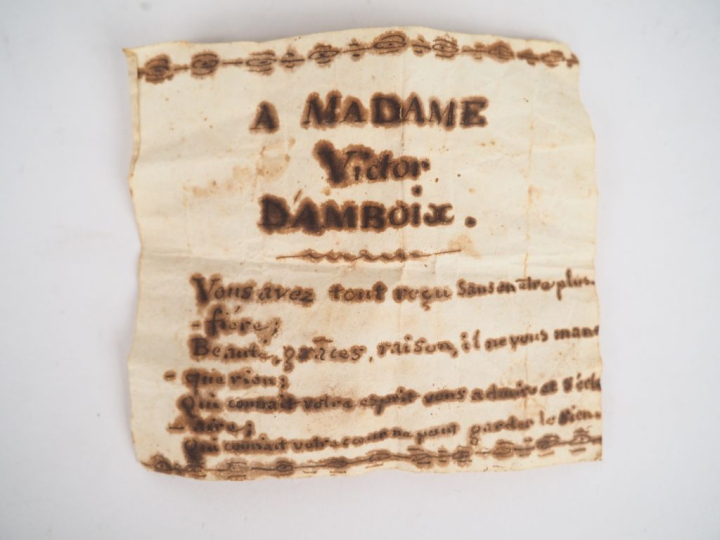 A MADAME
Victor
D'AMBOIX.
Vous avez tout reçu Sans en être plus
- fière;
Beauté, grâces, raison, il ne vous man
- que rien;
Qui connait votre esprit vous admire et s'écl
- aire;
Qui connait votre cœur ne peut garder le Sien.